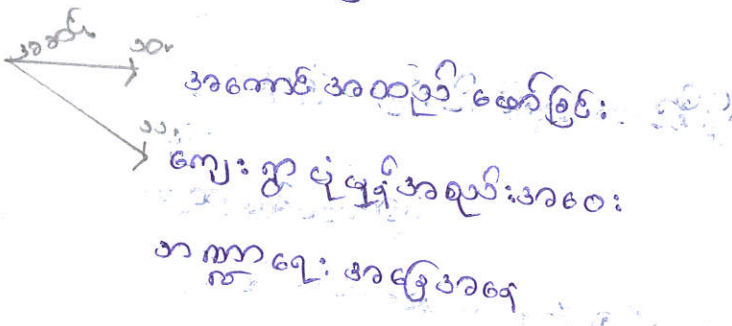 အခင်း
၁၀။
အကောင် အထည် ဖော်ခြင်း
၁၁။
ကျေးရွာ ပုံမှန်အစည်းအဝေး
ဘဏ္ဍာရေး အခြေအနေ